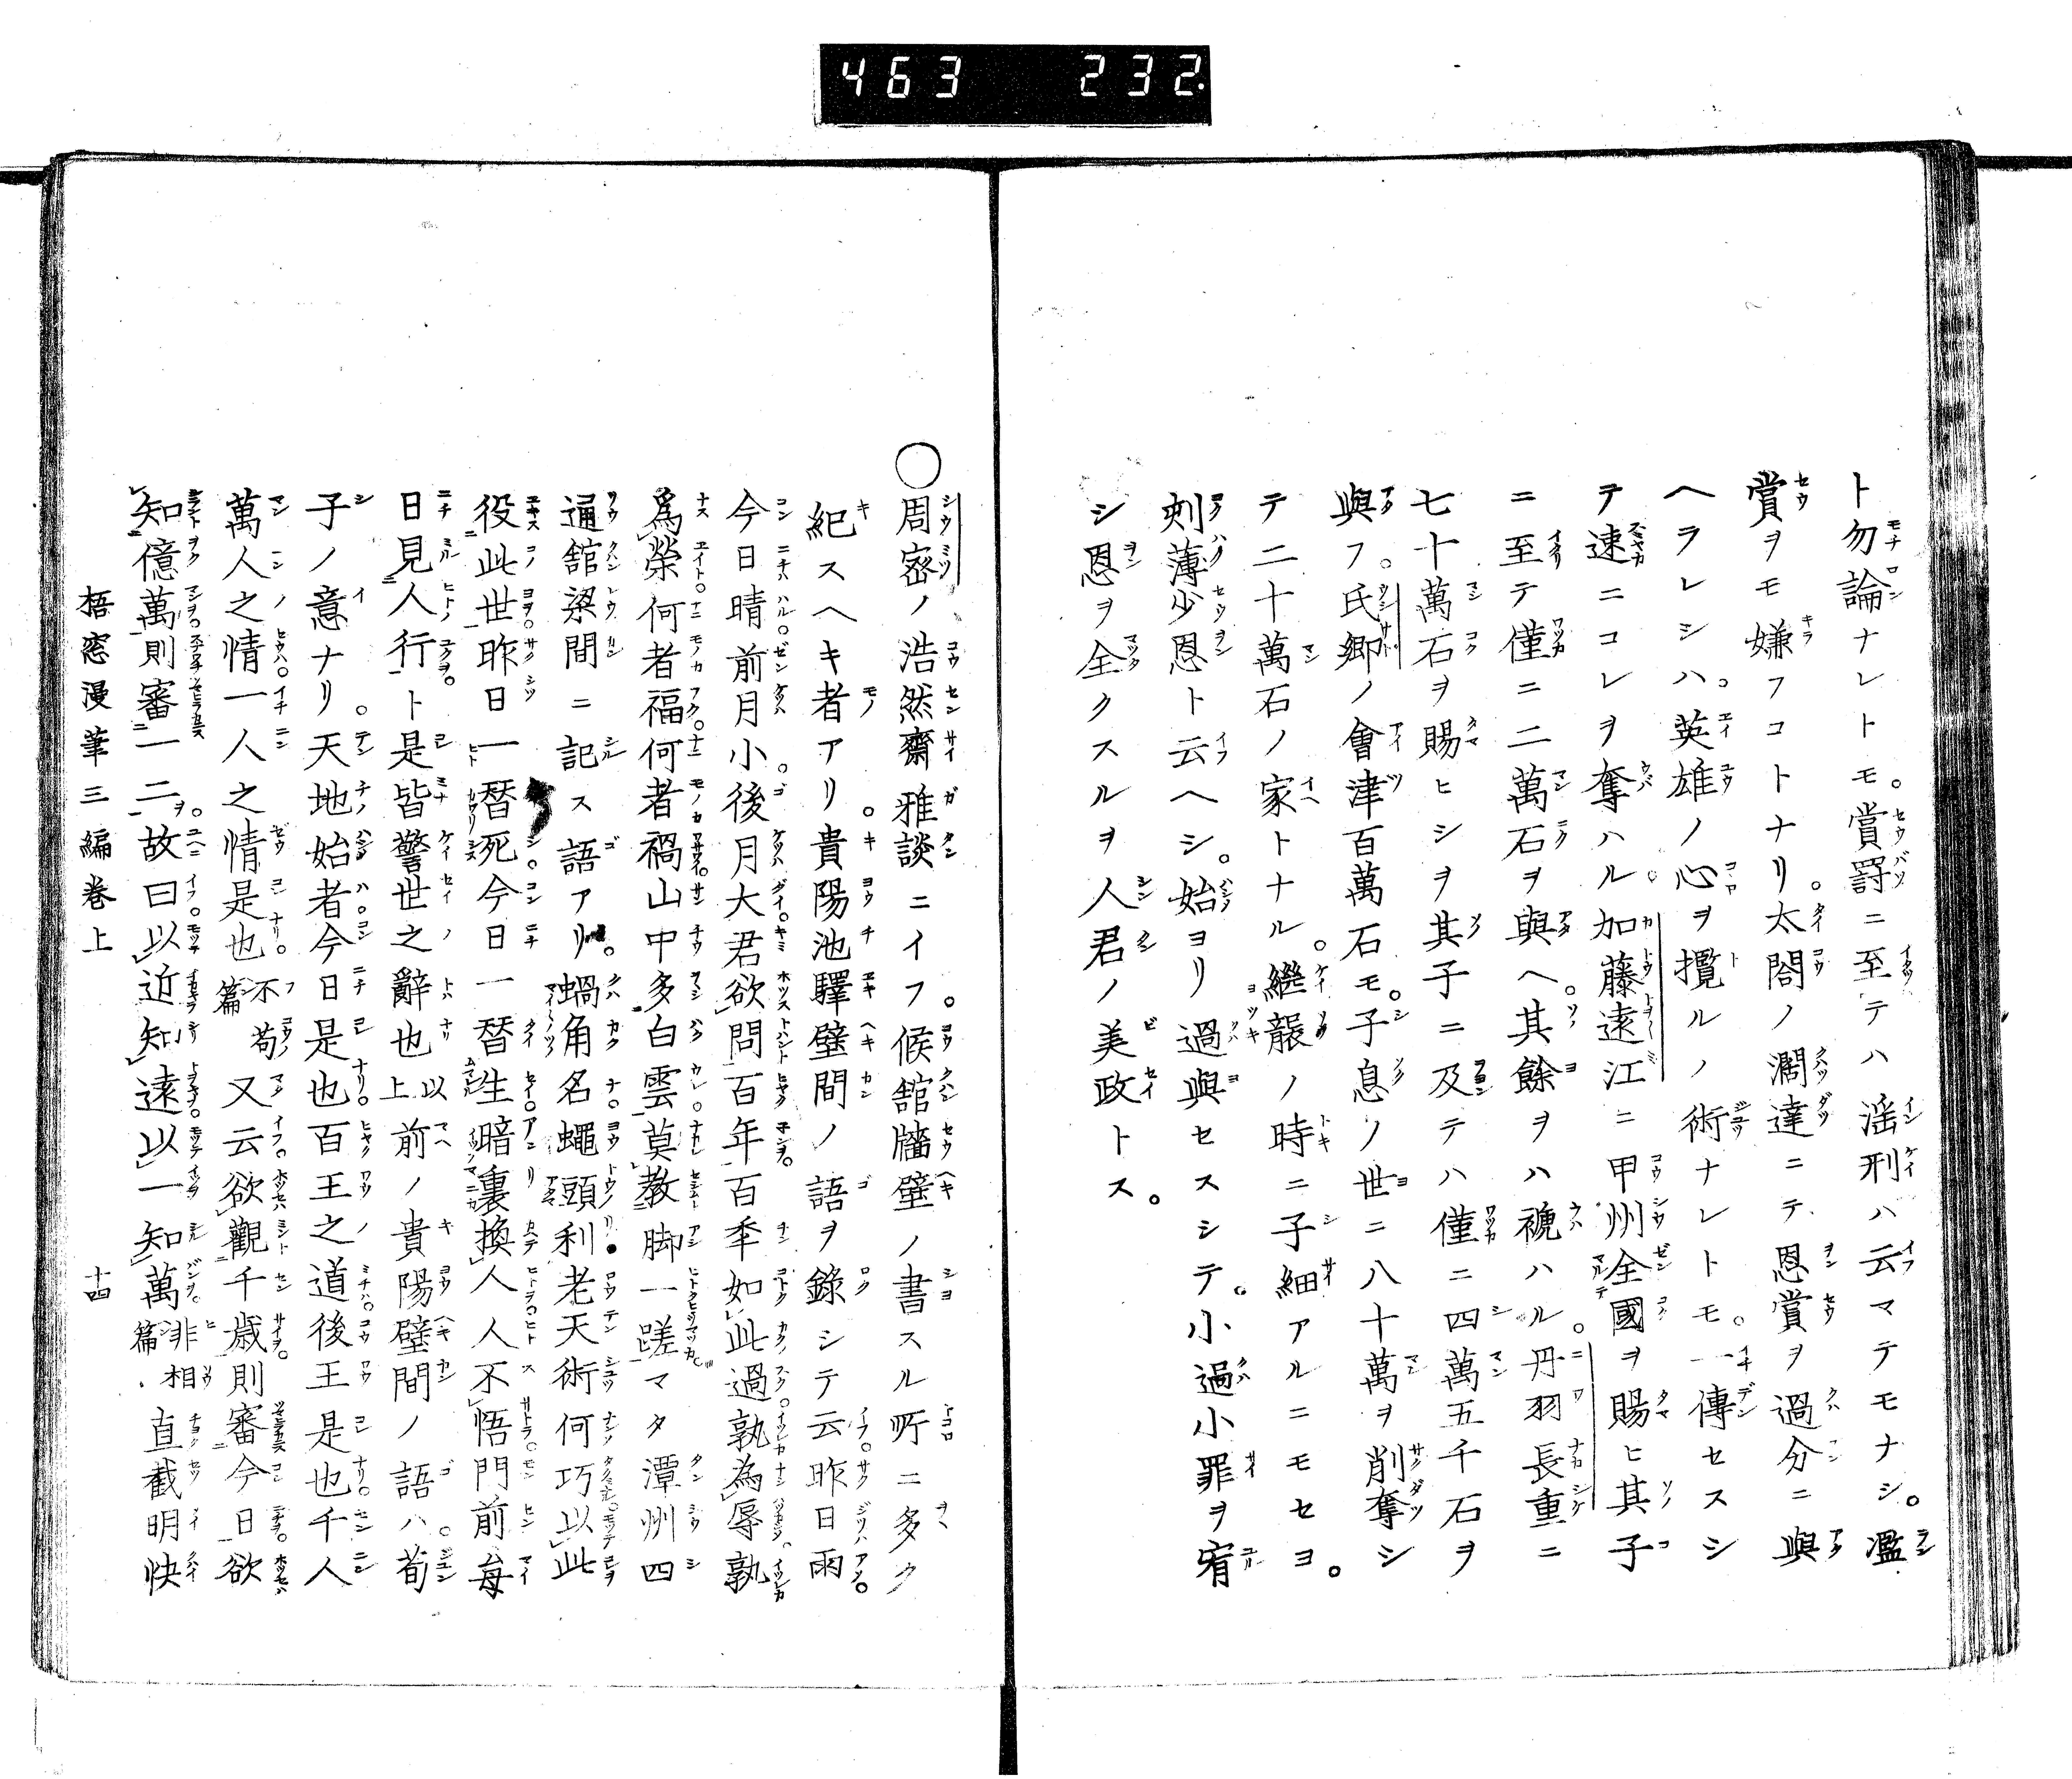 463 232
ト勿論ナレトモ。賞罸ニ至テハ滛刑ハ云マテモナシ。濫
賞ヲモ嫌フコトナリ。太閤ノ濶達ニテ恩賞ヲ過分ニ與
ヘラレシハ。英雄ノ心ヲ攬ルノ術ナレトモ。一傳セスシ
テ速ニコレヲ奪ハル。加藤遠江ニ甲州全國ヲ賜ヒ其子
ニ至テ僅ニ二萬石ヲ與ヘ。其餘ヲハ褫ハル。丹羽長重ニ
七十萬石ヲ賜ヒシヲ其子ニ及テハ僅ニ四萬五千石ヲ
與フ。氏郷ノ會津百萬石モ。子息ノ世ニ八十萬ヲ削奪シ
テ二十萬石ノ家トナル。繼襲ノ時ニ子細アルニモセヨ。
刾薄少恩ト云ヘシ。始ヨリ過與セスシテ。小過小罪ヲ宥
シ恩ヲ全クスルヲ人君ノ美政トス。
〇周宻ノ浩然齋雅談ニイフ。候舘牆壁ノ書スル所ニ多ク
紀スヘキ者アリ。貴陽池驛壁間ノ語ヲ錄シテ云昨日雨
今日晴前月小。後月大君欲問百年百秊如此過孰為辱孰
爲榮何者福何者禍山中多白雲莫教脚一蹉マタ潭州四
通舘梁間ニ記ス語アリ。蝸角名蠅頭利老天術何巧以此
役此世昨日一替死今日一替生暗裏換人人不悟門前每
日見人行ト是皆警世之辭也以上前ノ貴陽壁間ノ語ハ。荀
子ノ意ナリ。天地始者今日是也百王之道後王是也千人
萬人之情一人之情是也不苟篇又云欲觀千歳則審今日欲
知億萬則審一二。故曰以近知遠以一知萬非相篇直截明快
梧窓漫筆三編卷上 十四